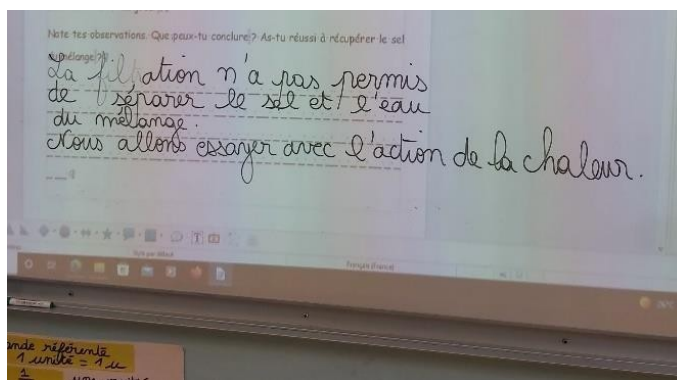 Note tes observations. Que peux-tu conclure ? As-tu réussi à récupérer le sel
mélange ?
La filtration n'a pas permis
de séparer le sel et l'eau
du mélange.
Nous allons essayer avec l'action de la chaleur.
Français (France)
26°C
ande référente
1 unité = 1 u
1